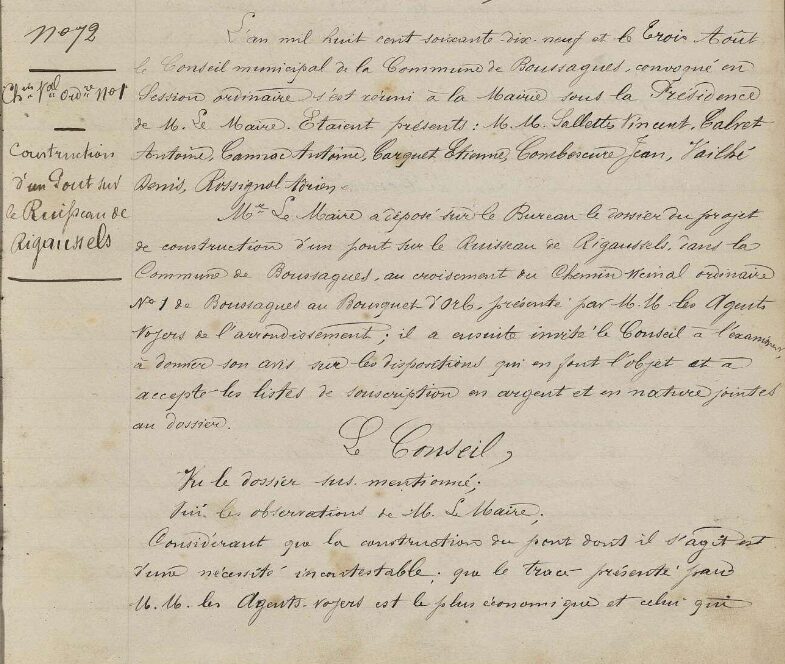 No 72
Chin Val Ordre No 1
Construction
d'un Pont sur
le Ruisseau de
Rigaussels
L'an mil huit cent soixante-dix-neuf et le Trois Août
le Conseil municipal de la Commune de Boussagues, convoqué en
Session ordinaire s'est réuni à la Mairie sous la Présidence
de M. Le Maire. Etaient présents: M.M. Sallettes Vincent, Calvet
Antoine, Cannac Antoine, Carquet Etienne, Combescure Jean, Vailhé
Denis, Rossignol Adrien
Mr Le Maire a déposé sur le Bureau le dossier du projet
de construction d'un pont sur le Ruisseau de Rigaussels, dans la
Commune de Boussagues, au croisement du Chemin vicinal ordinaire
No 1 de Boussagues au Bousquet d'Orb, présenté par M.M. les Agents
Voyers de l'arrondissement; il a ensuite invité le Conseil à l'examiner,
à donner son avis sur les dispositions qui en font l'objet et à
accepter les listes de souscription en argent et en nature jointes
au dossier.
Le Conseil,
Vu le dossier sus-mentionné;
les observations de M. Le Maire;
Considérant que la construction du pont dont il s'agit est
d'une nécessité incontestable, que le tracé présenté par
M.M. les Agents-voyers est le plus économique et celui qui